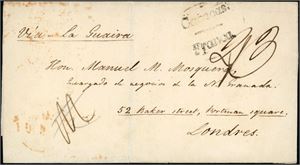 Via La Guaira
Hon. Manuel M. Mosquera
Encargado de negocios de la N. Granada
52 Baker street, Portman square.
Londres.